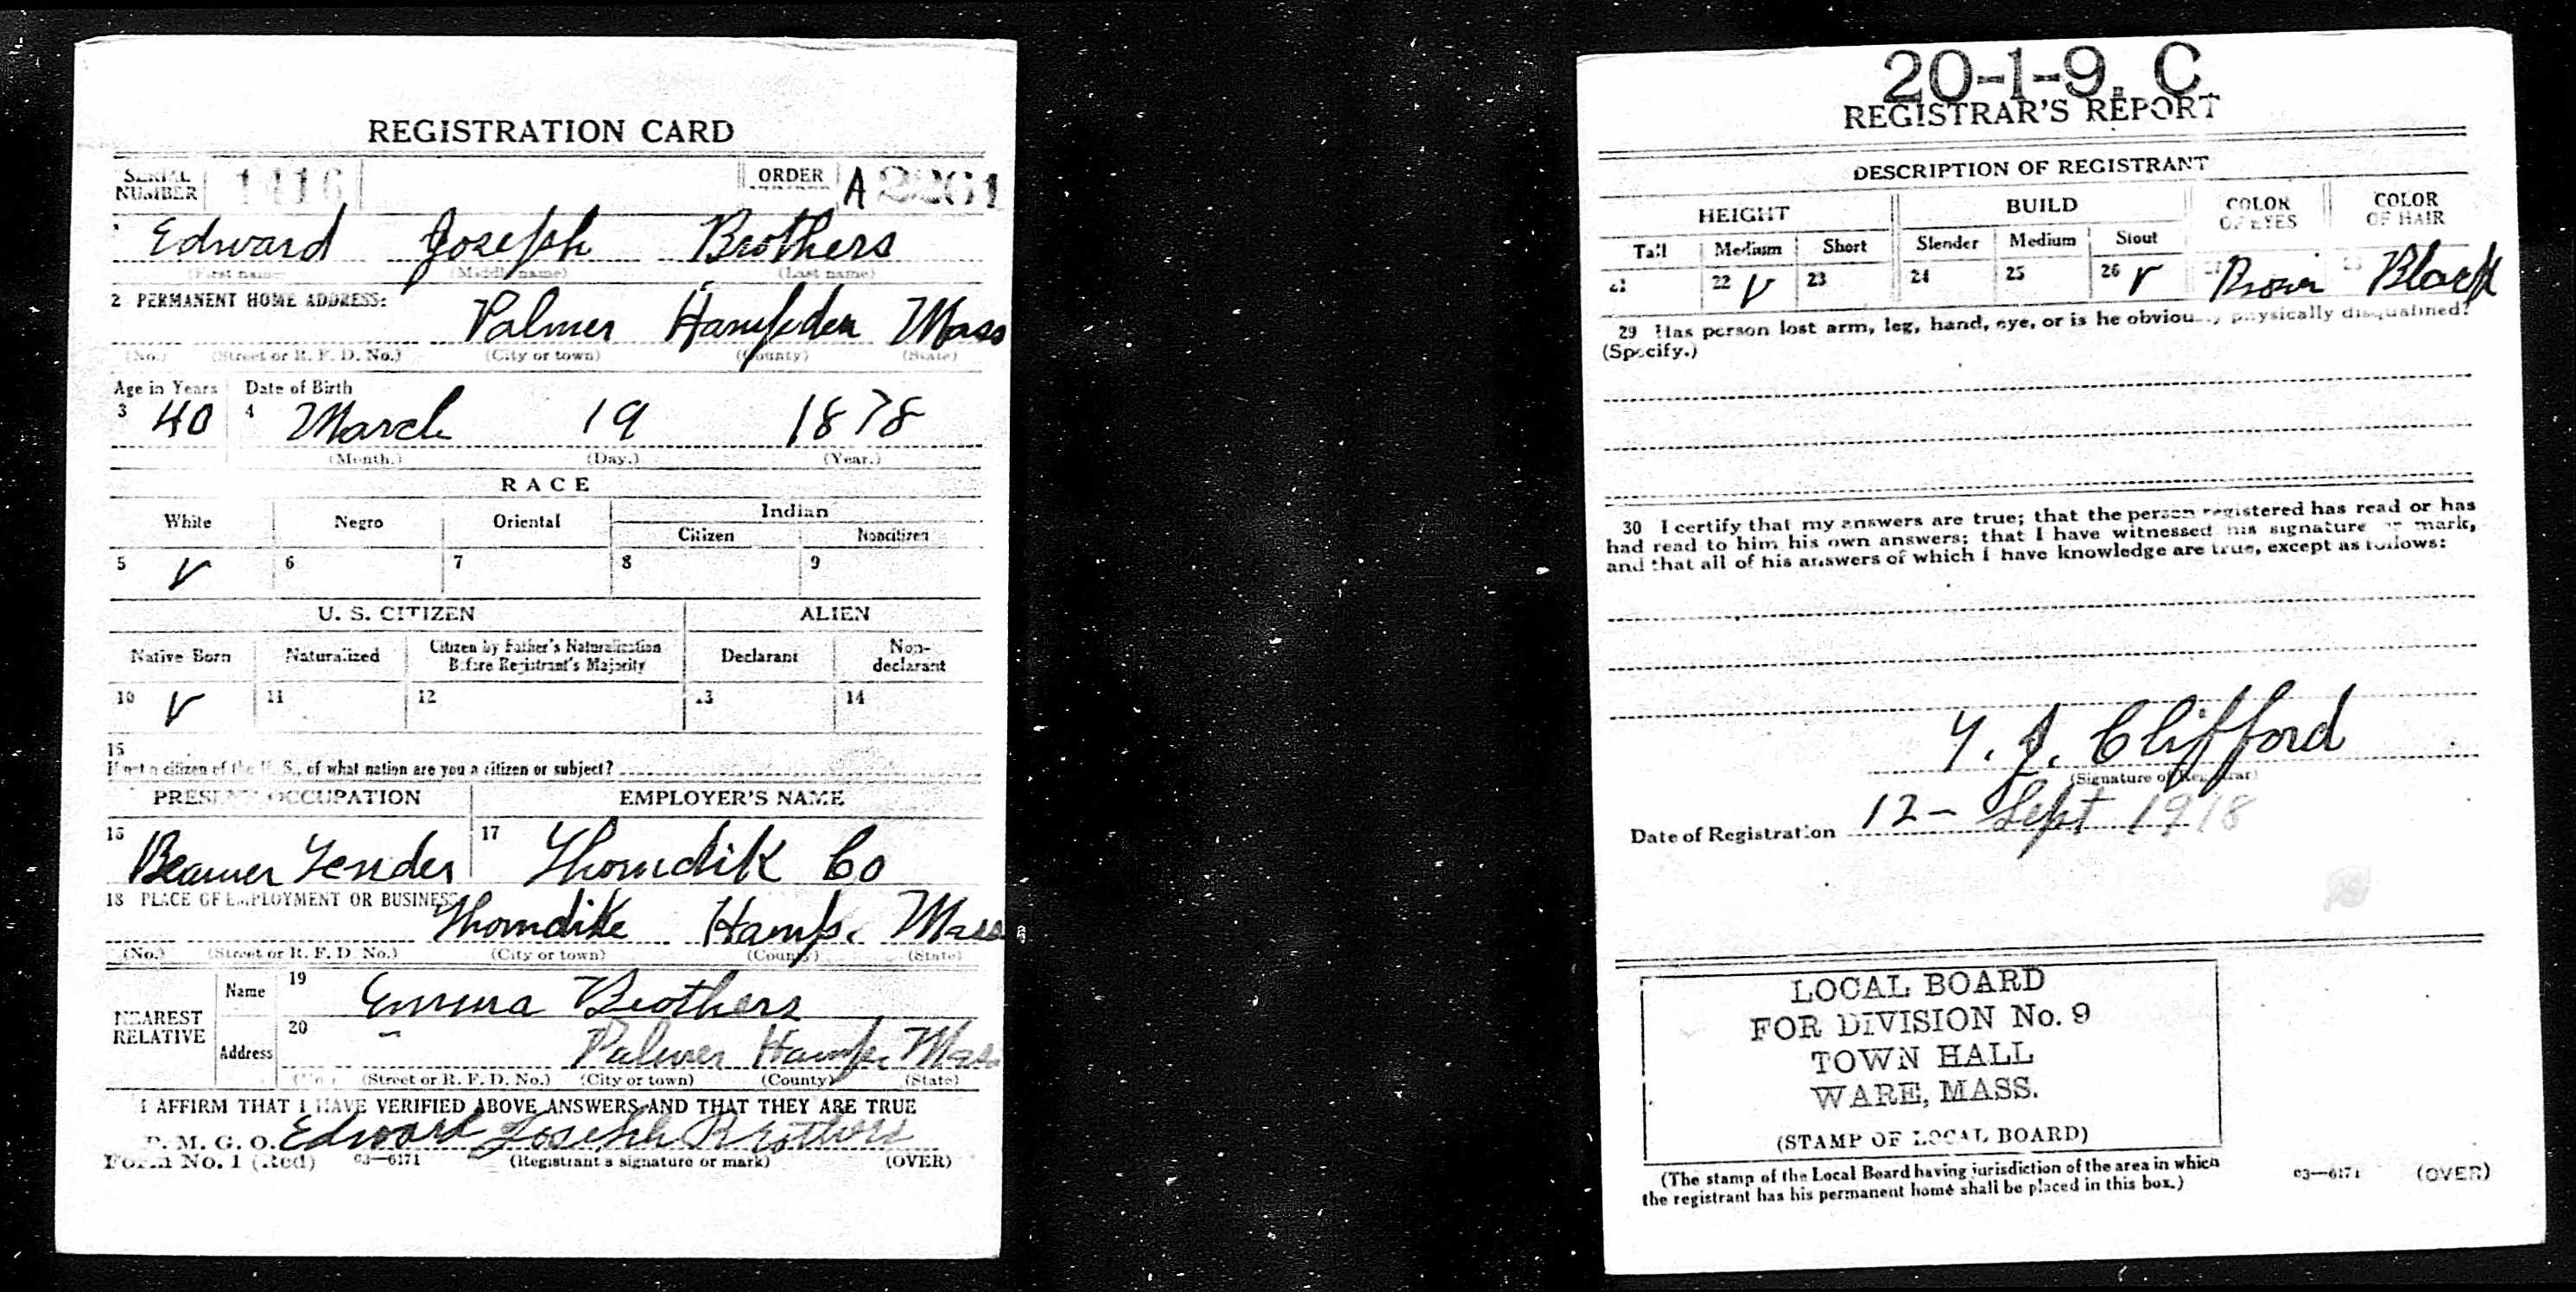 REGISTRATION CARD
SERIAL NUMBER 1416 ORDER NUMBER A 2261
1 Edward Joseph Brothers
(First name) (Middle name) (Last name)
2 PERMANENT HOME ADDRESS:
Palmer Hampden Mass
(No.) (Street or R. F. D. No.) (City or town) (County) (State)
Age in Years Date of Birth
3 40 4 March 19 1878
(Month.) (Day.) (Year.)
RACE
White Negro Oriental Indian
Citizen Noncitizen
5 V 6 7 8 9
U. S. CITIZEN ALIEN
Native Born Naturalized Citizen by Father's Naturalization Before Registrant's Majority Declarant Non-declarant
10 V 11 12 13 14
15
If not a citizen of the U. S., of what nation are you a citizen or subject?
PRESENT OCCUPATION EMPLOYER'S NAME
16 Beamer Tender 17 Thorndik Co
18 PLACE OF EMPLOYMENT OR BUSINESS:
Thorndike Hamp. Mass
(No.) (Street or R. F. D. No.) (City or town) (County) (State)
NEAREST RELATIVE Name 19 Emma Brothers
Address 20 – Palmer Hamp. Mass
(No.) (Street or R. F. D. No.) (City or town) (County) (State)
I AFFIRM THAT I HAVE VERIFIED ABOVE ANSWERS AND THAT THEY ARE TRUE
P. M. G. O. Edward Joseph Brothers
Form No. 1 (Red) 03—6171 (Registrant's signature or mark) (OVER)
20-1-9. C
REGISTRAR'S REPORT
DESCRIPTION OF REGISTRANT
HEIGHT BUILD COLOR OF EYES COLOR OF HAIR
Tall Medium Short Slender Medium Stout
21 22 V 23 24 25 26 V 27 Brown 28 Black
29 Has person lost arm, leg, hand, eye, or is he obviously physically disqualified?
(Specify.)
30 I certify that my answers are true; that the person registered has read or has
had read to him his own answers; that I have witnessed his signature or mark,
and that all of his answers of which I have knowledge are true, except as follows:
Y. J. Clifford
(Signature of Registrar)
Date of Registration 12 – Sept 1918
LOCAL BOARD
FOR DIVISION No. 9
TOWN HALL
WARE, MASS.
(STAMP OF LOCAL BOARD)
(The stamp of the Local Board having jurisdiction of the area in which
the registrant has his permanent home shall be placed in this box.)
03—6171 (OVER)